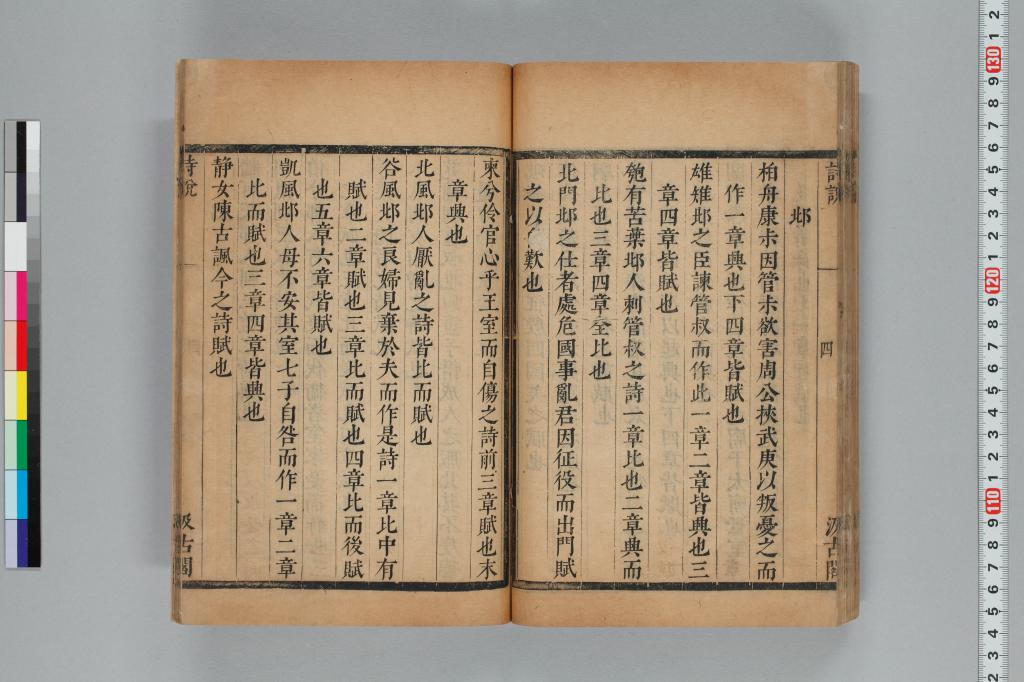 詩說
四
汲古閣
邶
柏舟康尗因管尗欲害周公挾武庚以叛憂之而
作一章興也下四章皆賦也
雄雉邶之臣諫管叔而作此一章二章皆興也三
章四章皆賦也
匏有苦葉邶人刺管叔之詩一章比也二章興而
比也三章四章全比也
北門邶之仕者處危國事亂君因征役而出門賦
之以歎也
柬兮伶官心乎王室而自傷之詩前三章賦也末
章興也
北風邶人厭亂之詩皆比而賦也
谷風邶之良婦見棄於夫而作是詩一章比中有
賦也二章賦也三章比而賦也四章比而後賦
也五章六章皆賦也
凱風邶人母不安其室七子自咎而作一章二章
比而賦也三章四章皆興也
靜女陳古諷今之詩賦也
詩說
汲古閣
2 3 4 5 6 7 8 9 110 1 2 3 4 5 6 7 8 9 120 1 2 3 4 5 6 7 8 9 130 1 2